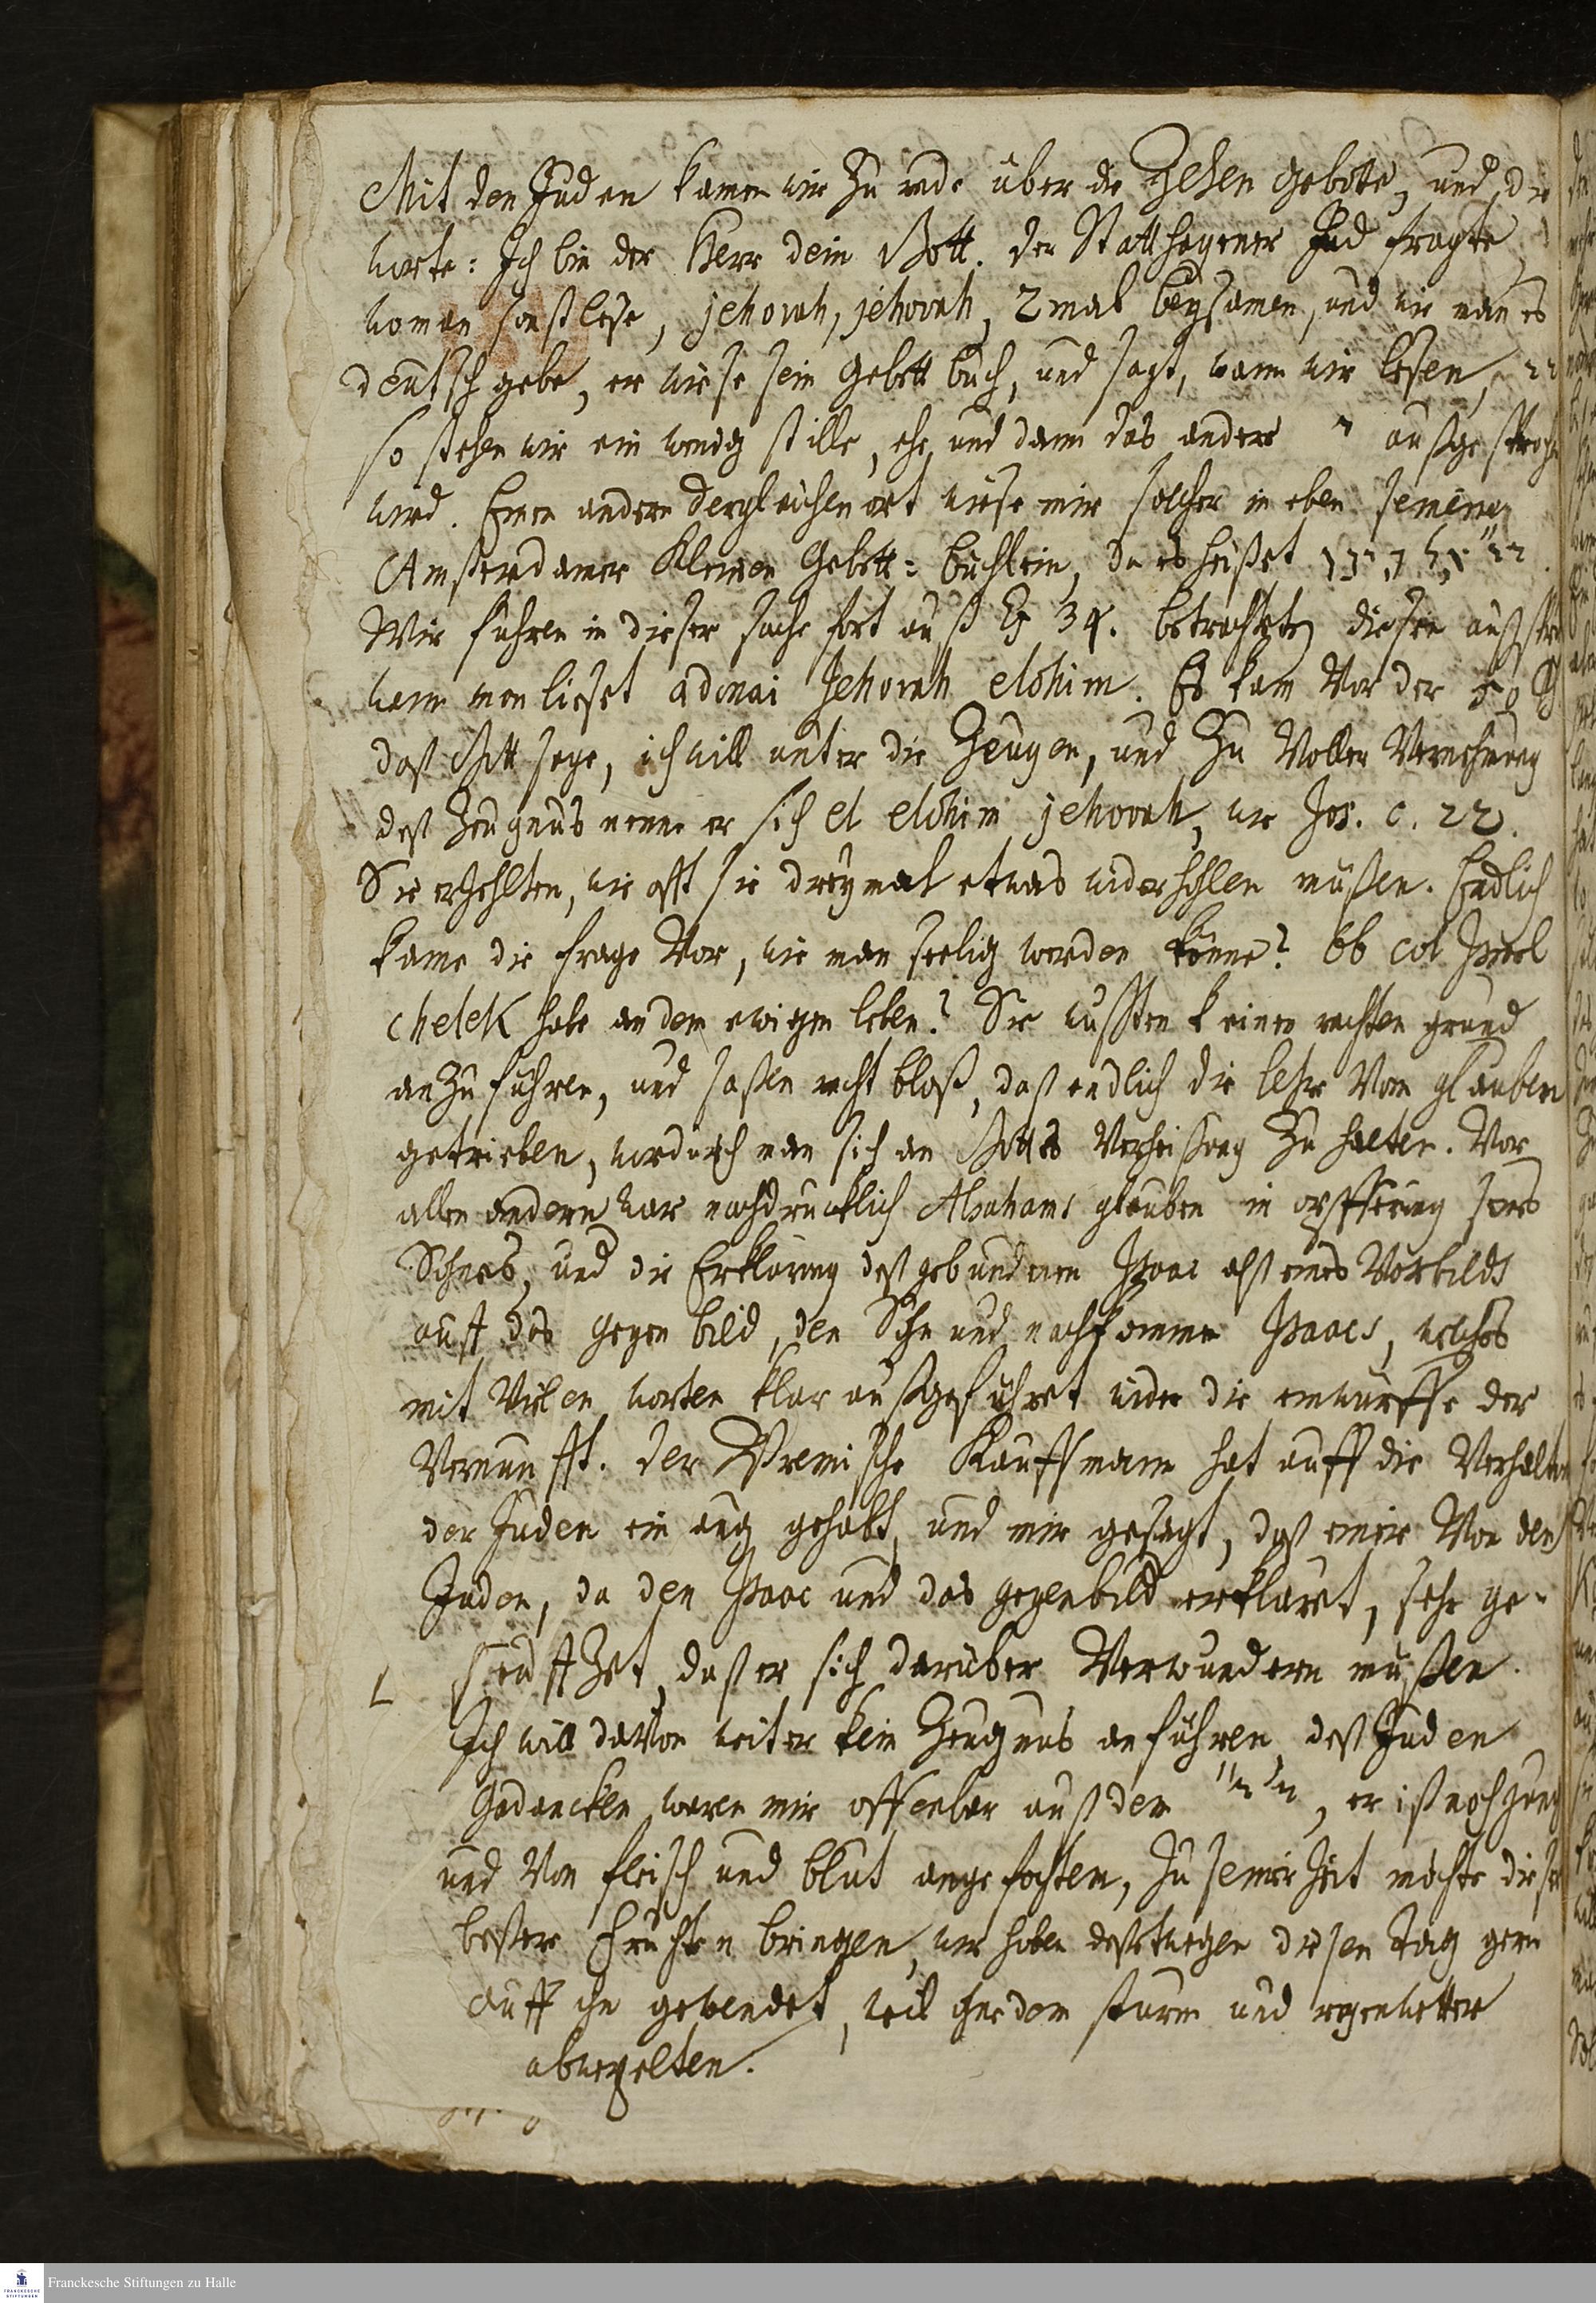 Mit den Juden kamen wir zu rede über die Zehen Gebotte, und die
worte: Ich bin der Herr dein Gott. Der Statthagener Jud fragte
wo man sonst lese, jehovah, jehovah, 2 mal beysamen, und wie man es
deutsch gebe, er wiese sein Gebett buch, und sagt, wann wir lesen, יי
so stehen wir ein wenig stille, ehe und dann das andere י außgesproch
wird. Einen andern dergleichen ort wiese mir solcher in eben seinem
Amsterdamer Kleinen Gebett-büchlein, da es heißet
Wir fuhren in dieser sache fort auß Ex 34. betrachteten diesen
wann man lieset adonai Jehovah elohim. Es kam vor der 50
daß Gott sage, ich will unter die zeugen, und zu voller
deß zeugnus nenne er sich el elohim jehovah, wie Jos. c. 22.
Sie erzehlten, wie offt sie dreymal etwas widerhohlen müßen. Endlich
kame die frage vor, wie man seelig werden könne? Ob col Israel
chelek habe an dem ewigen leben? Sie wußten keinen rechten grund
anzuführen, und saßen recht bloß, daß endlich die lehr vom glauben
getrieben, wordurch man sich an Gottes Verheißung zu halten. Vor
allen andern war nachdrücklich Abrahams glauben in opfferung seines
Sohnes, und die Erklärung deß gebundenen Isaac alß eines Vorbilds
auff das gegen bild, den Sohn und nachkommen Isaacs, welches
mit vielen worten klar außgeführet wider die einwürffe der
Vernunfft. Der Bremische Kauffmann hat auff die Verhalten
der Juden ein aug gehabt, und mir gesagt, daß einer von den
Juden, da den Isaac und das gegenbild erklärt, sehr ge-
seufftzet, daß er sich darüber verwundern müßen.
Ich will davon weiter kein zeugnus anführen, deß Juden
Gedancken waren mir offenbar auß dem, er ist noch jung
und von fleisch und blut angefochten, zu seiner zeit möchte dieser
beßere Früchten bringen, wir haben deßwegen diesen tag gern
auff ihn gewendet, weil ohnedem sturm und regenwetter
Franckesche Stiftungen zu Halle